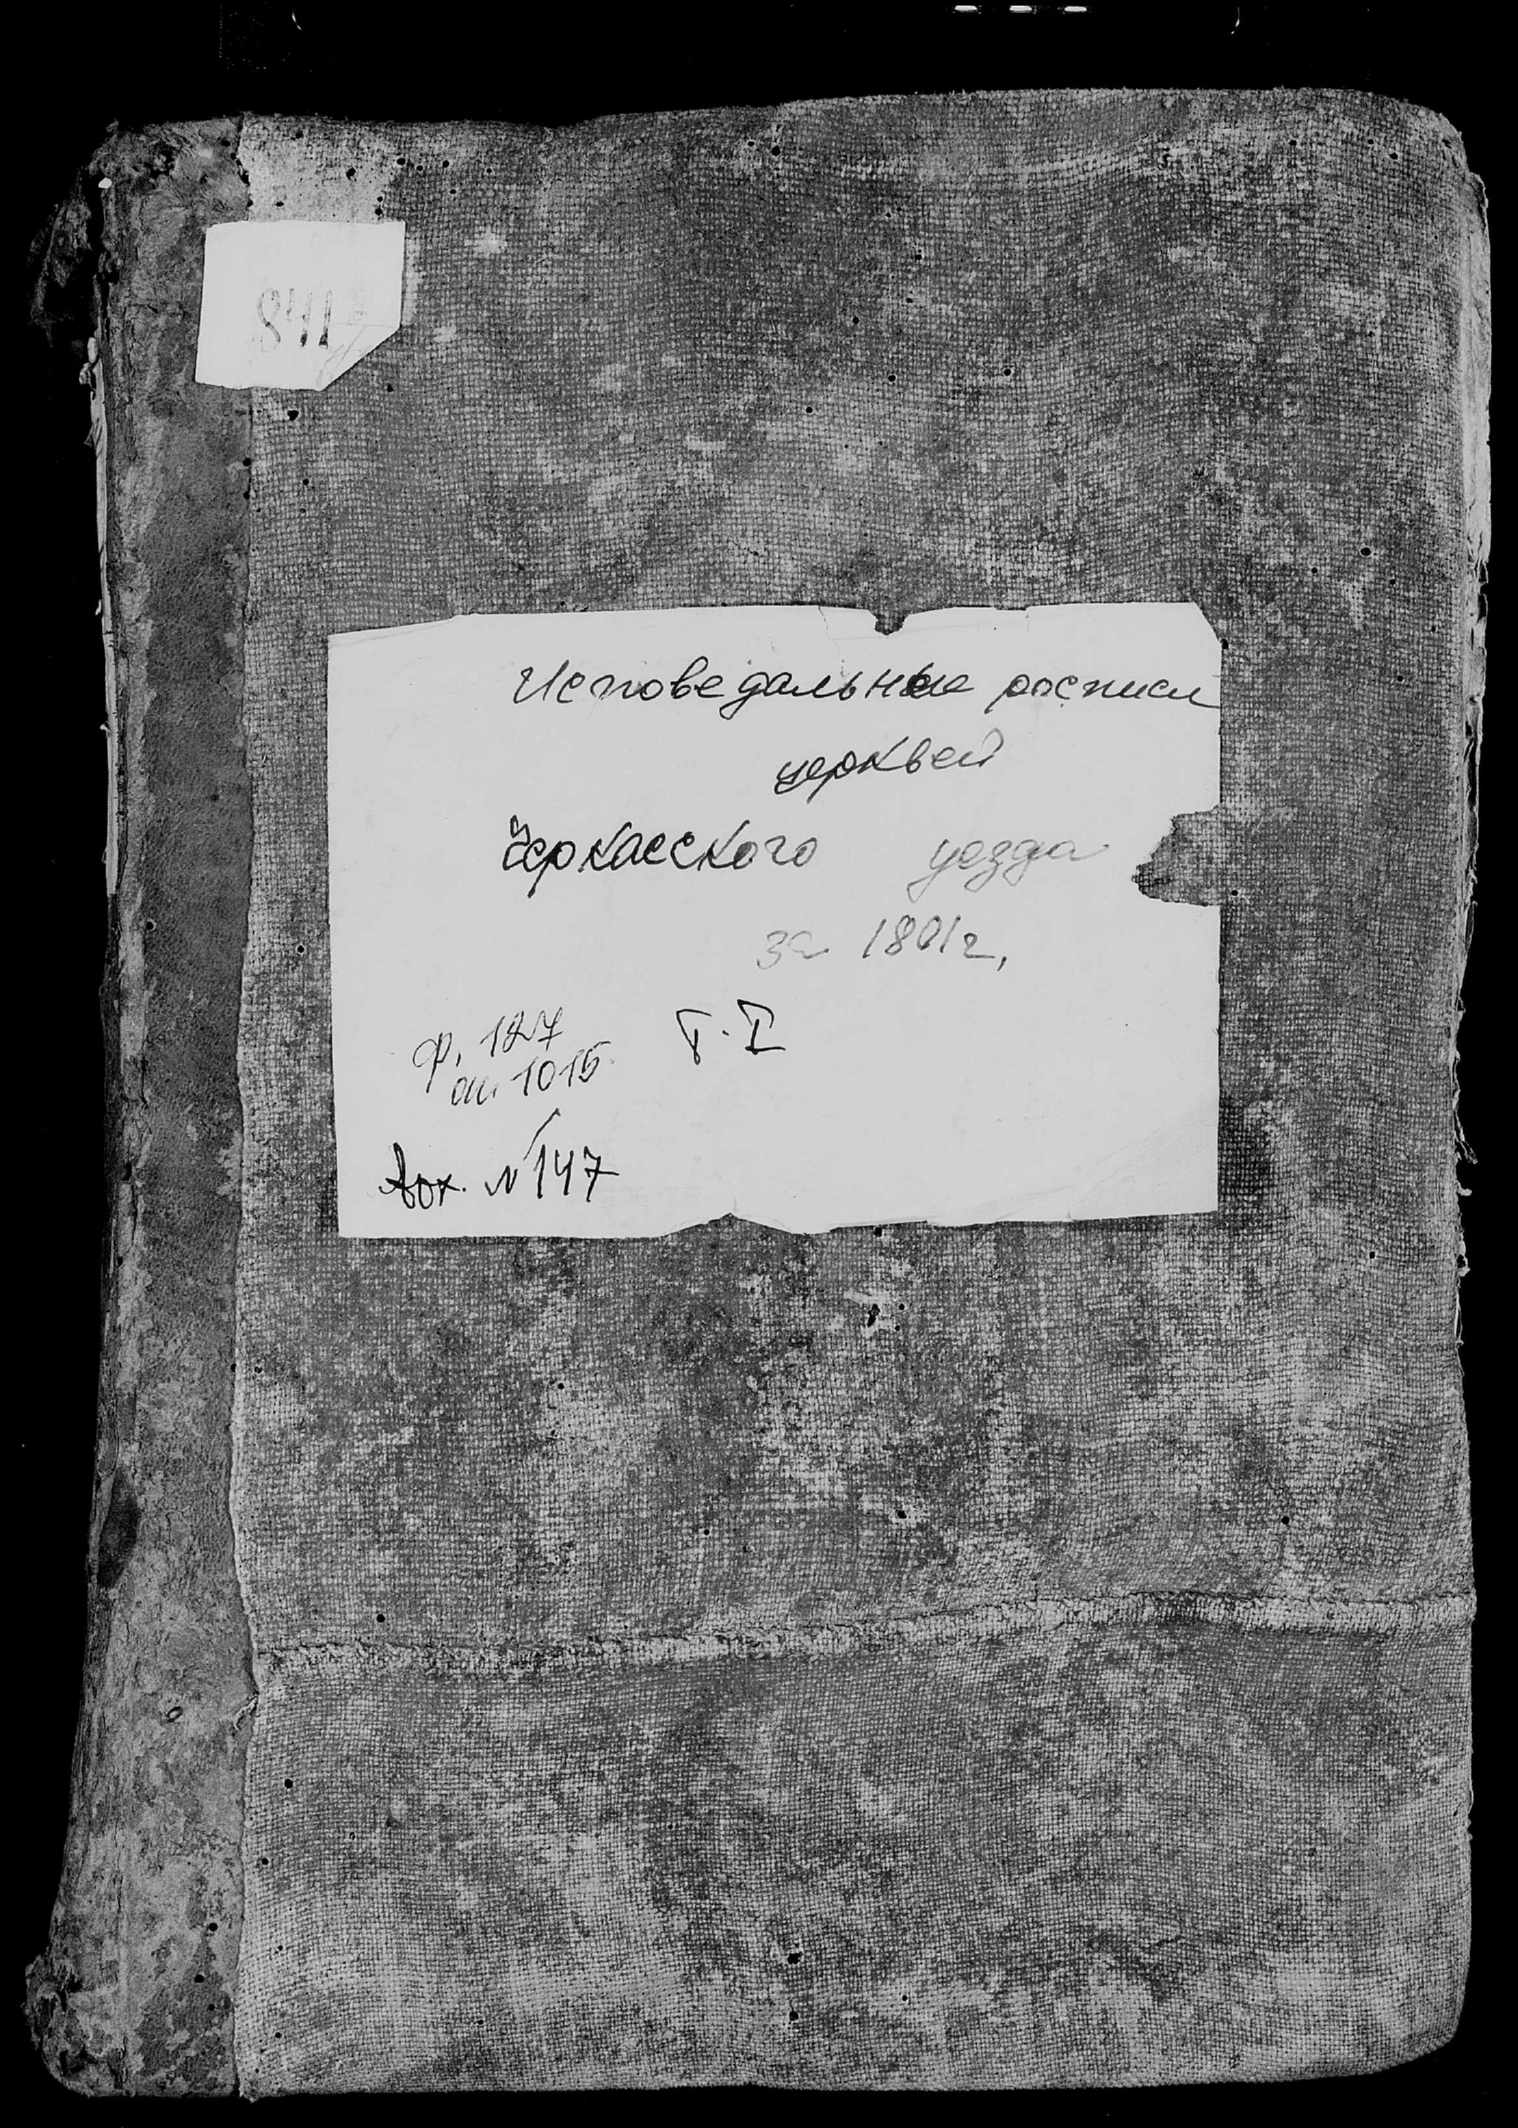 841
Исповедальные росписи
церквей
Черкасского уезда
за 1801г.
Т. I
ф. 127
оп. 1015
Арх. №147